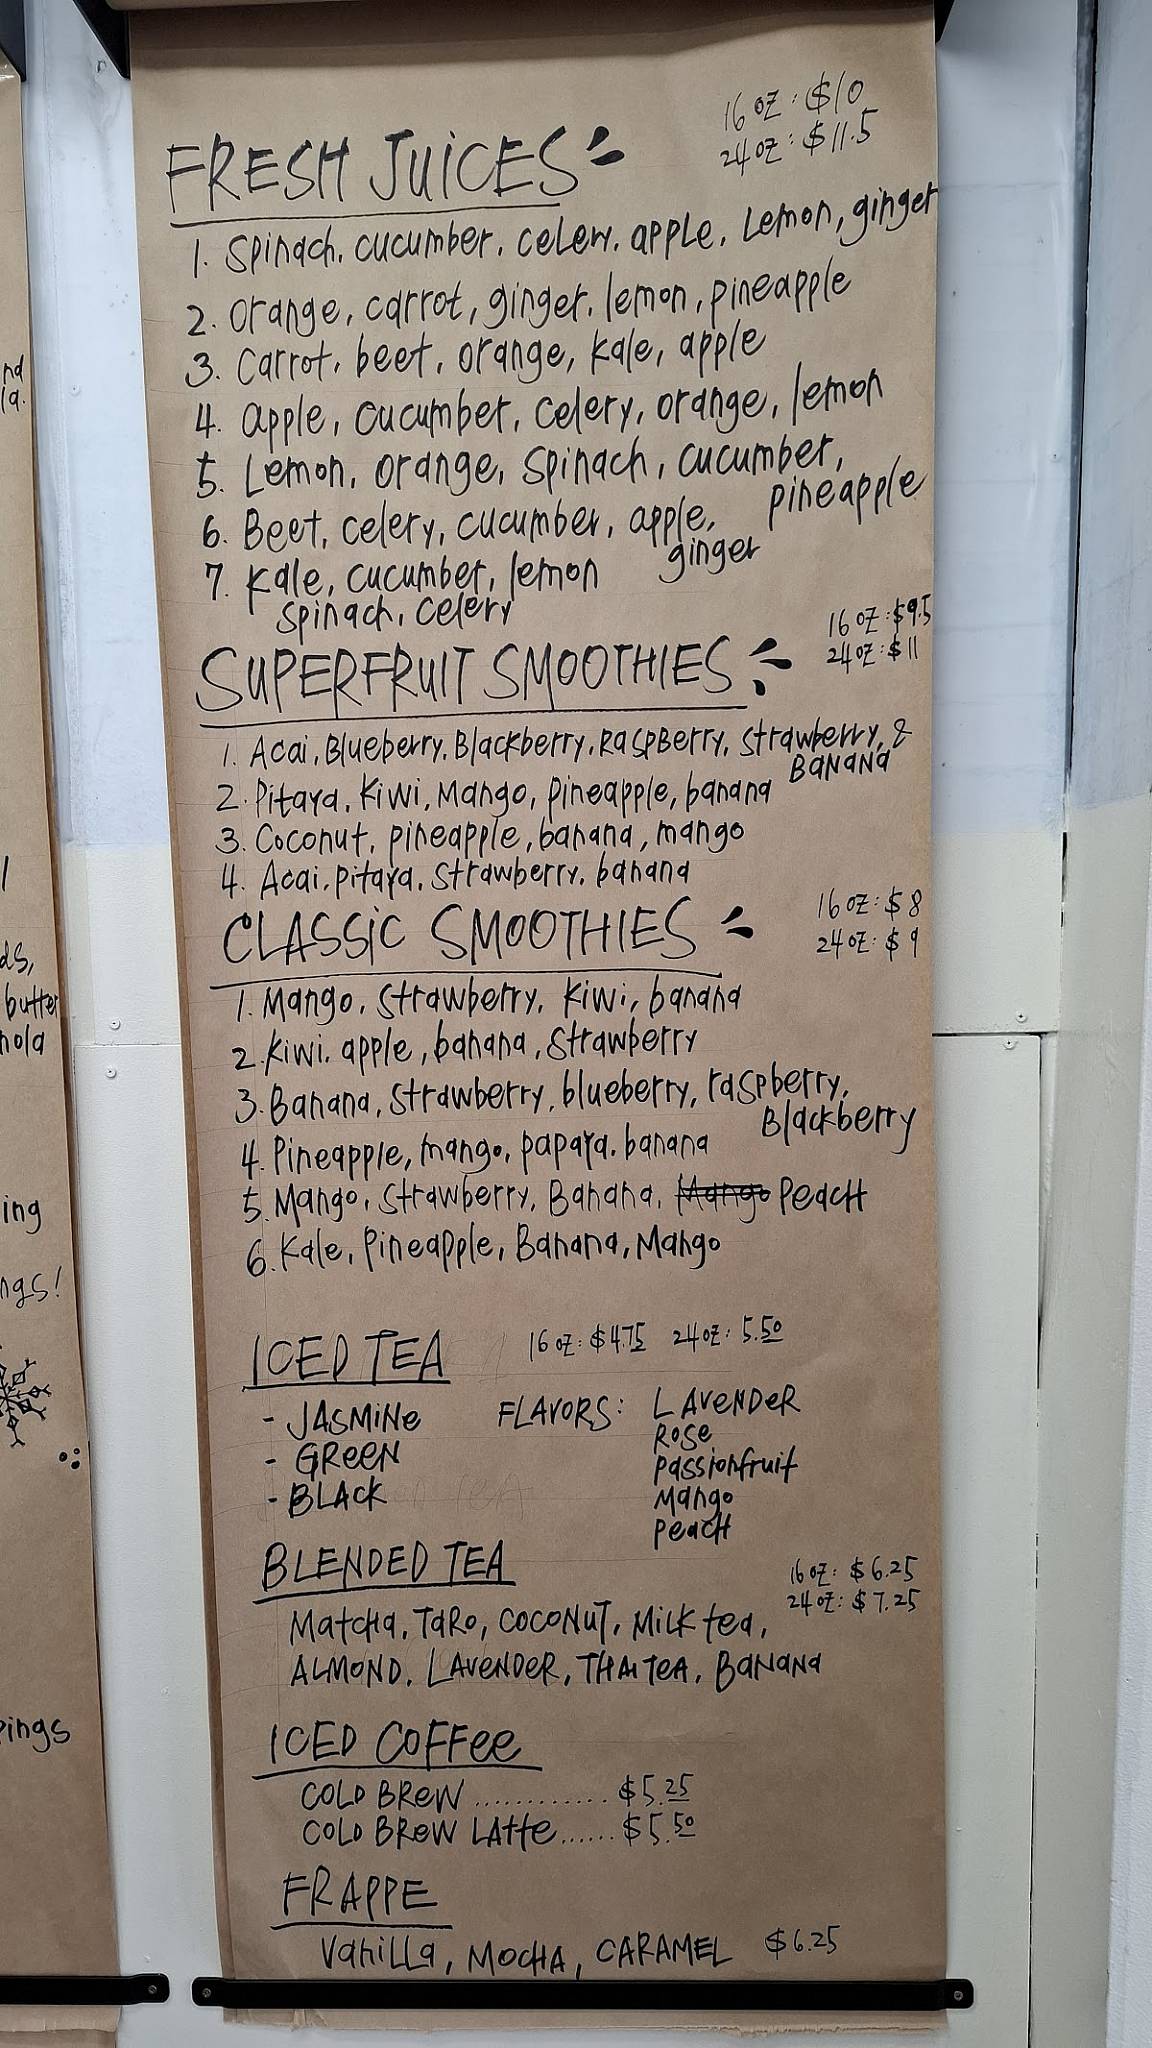 16 oz: $10
24 oz: $11.5
FRESH JUICES
1. Spinach, cucumber, celery, apple, Lemon, ginger
2. orange, carrot, ginger, lemon, pineapple
3. Carrot, beet, orange, kale, apple
4. apple, cucumber, celery, orange, lemon
5. Lemon, orange, spinach, cucumber,
pineapple
6. Beet, celery, cucumber, apple,
ginger
7. Kale, cucumber, lemon
spinach, celery
16 oz: $9.5
24 oz: $11
SUPERFRUIT SMOOTHIES
1. Acai, Blueberry, Blackberry, Raspberry, Strawberry, &
BANANA
2. Pitaya, Kiwi, Mango, pineapple, banana
3. Coconut, pineapple, banana, mango
4. Acai, pitaya, Strawberry, banana
16 oz: $8
24 oz: $9
CLASSIC SMOOTHIES
1. Mango, Strawberry, Kiwi, banana
2. Kiwi, apple, banana, Strawberry
3. Banana, Strawberry, blueberry, raspberry,
Blackberry
4. Pineapple, mango, papaya, banana
5. Mango, Strawberry, Banana, Mango PEACH
6. Kale, Pineapple, Banana, Mango
ICED TEA 16 oz: $4.75 24 oz: 5.50
- JASMINE FLAVORS: LAVENDER
- GREEN ROSE
- BLACK Passionfruit
Mango
PEACH
BLENDED TEA
16 oz: $6.25
24 oz: $7.25
Matcha, TARO, COCONUT, MILK tea,
ALMOND, LAVENDER, THAI TEA, BANANA
ICED COFFEE
COLD BREW ............ $5.25
COLD BREW LATTE ...... $5.50
FRAPPE
Vanilla, MOCHA, CARAMEL $6.25
nd
la.
ds,
butter
nola
ing
ngs!
pings